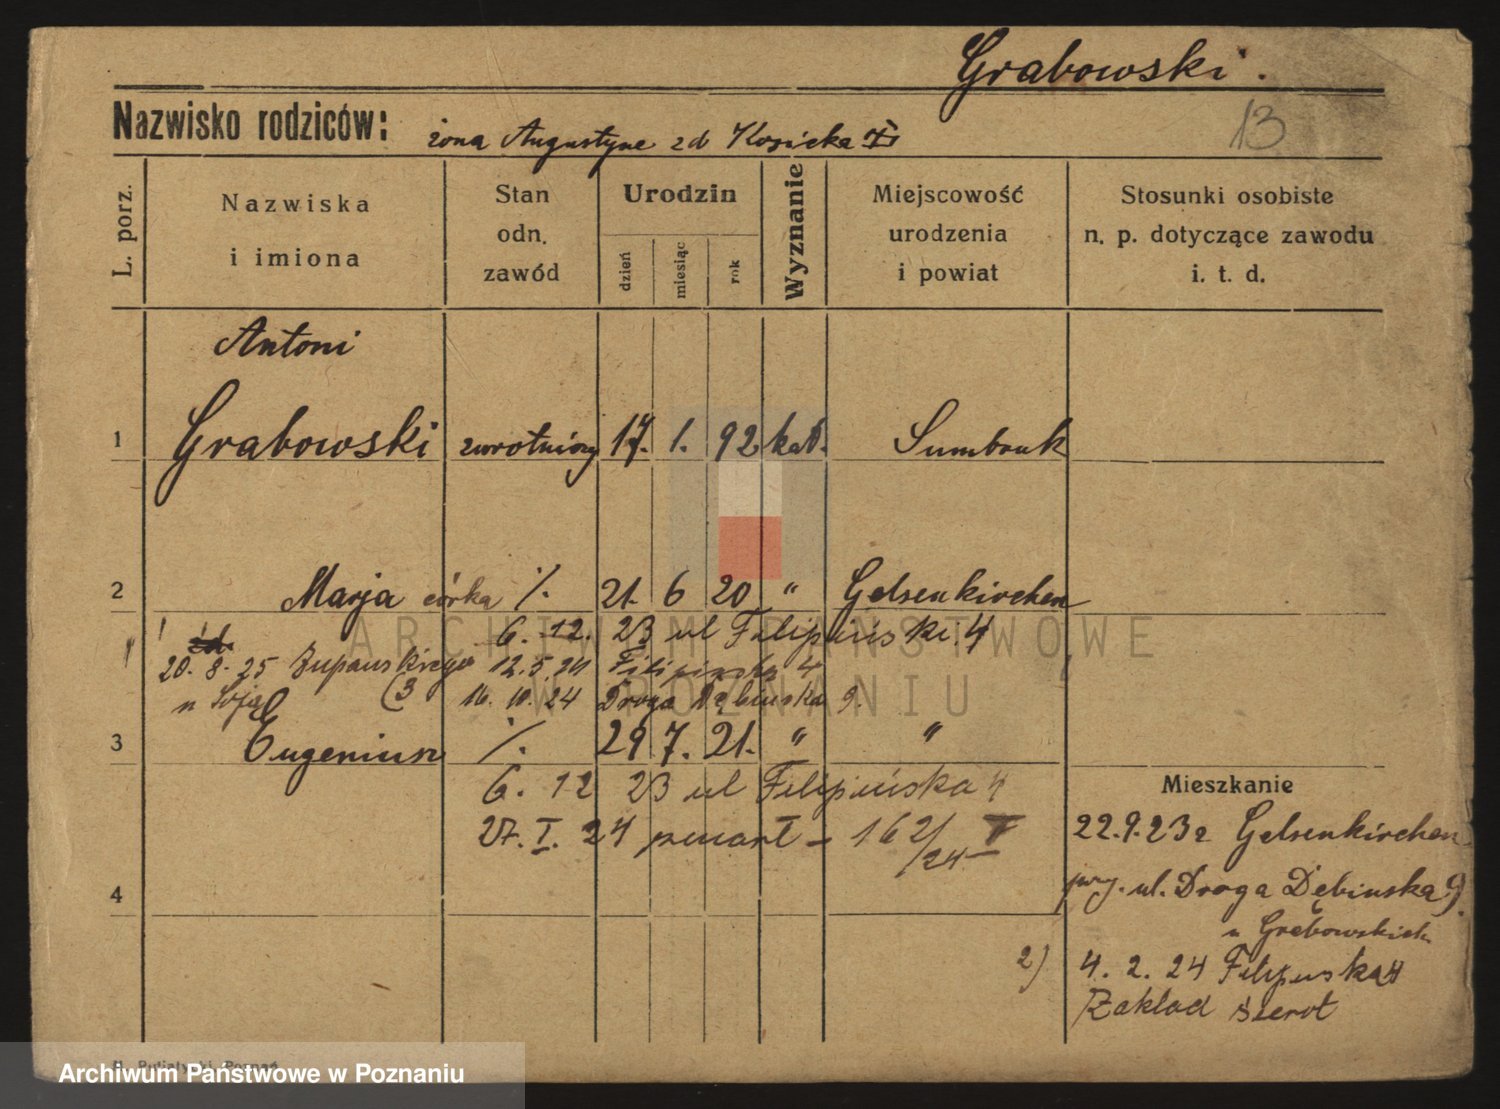 Grabowski.
13
Nazwisko rodziców: żona Augustyne zd Kosicka
L. porz.
Nazwiska i imiona
Stan odn. zawód
Urodzin
dzień
miesiąc
rok
Wyznanie
Miejscowość urodzenia i powiat
Stosunki osobiste n. p. dotyczące zawodu i. t. d.
Antoni
1 Grabowski zwrotniczy 17. 1. 92 kat.
2 Marja córka ./. 21. 6 20 " Gelsenkirchen
6. 12. 23 ul Filipińska 4
20. 8. 25 Żupańskiego 12.5.24 Filipińska 4
3 16. 10. 24 Droga Dębińska 9.
3 Eugeniusz ./. 29 7. 21. " "
6. 12 23 ul Filipińska 4
27. I. 24 zmarł - 162/24
Mieszkanie
22.9.23 z Gelsenkirchen
przy. ul. Droga Dębinska 9.
u Grabowskich
4
2) 4. 2. 24 Filipinska 4
Zakład sierot
ARCHIWUM PAŃSTWOWE
W POZNANIU
Archiwum Państwowe w Poznaniu